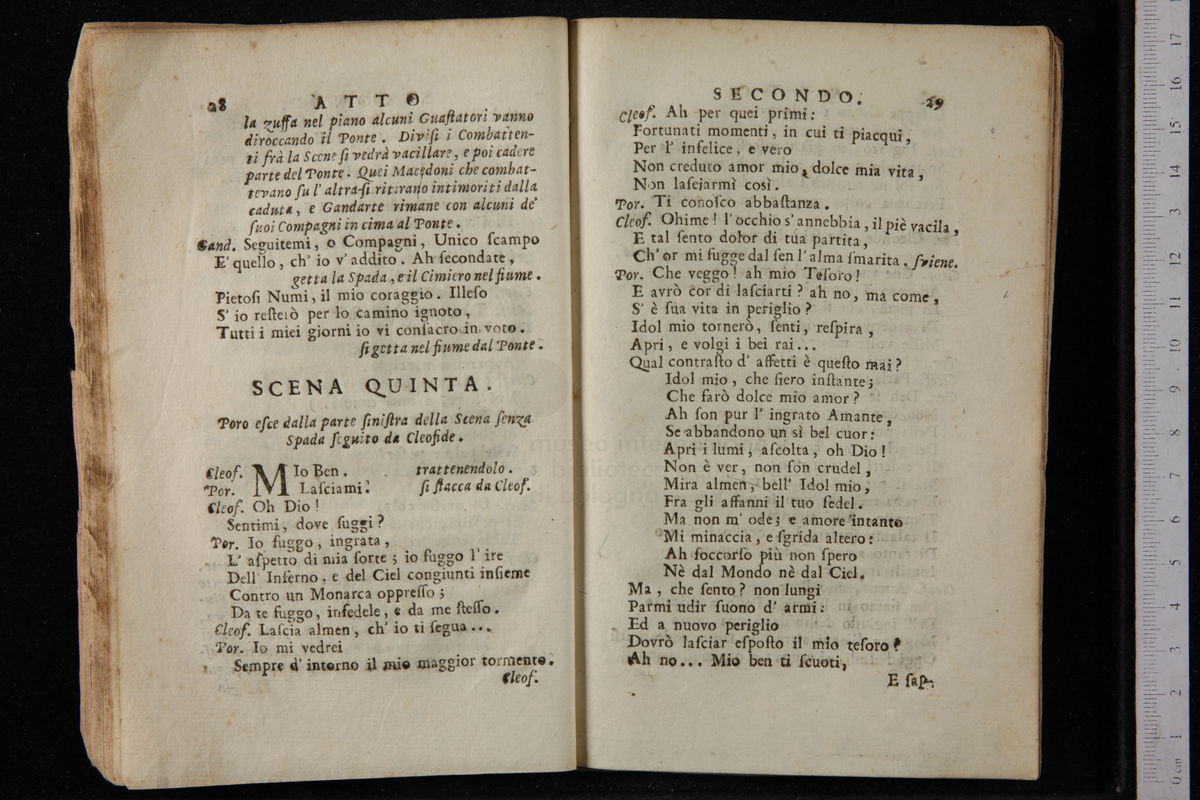 28 ATTO
la zuffa nel piano alcuni Guaſtatori vanno
diroccando il Ponte. Diviſi i Combatten-
ti frà la Scene ſi vedrà vacillare, e poi cadere
parte del Ponte. Quei Macedoni che combat-
tevano ſu l' altra ſi ritirano intimoriti dalla
caduta, e Gandarte rimane con alcuni de'
ſuoi Compagni in cima al Ponte.
Gand. Seguitemi, o Compagni, Unico ſcampo
E' quello, ch' io v' addito. Ah ſecondate,
getta la Spada, e il Cimiero nel fiume.
Pietoſi Numi, il mio coraggio. Illeſo
S' io reſterò per lo camino ignoto,
Tutti i miei giorni io vi conſacro in voto.
ſi getta nel fiume dal Ponte.
SCENA QUINTA.
Poro eſce dalla parte ſiniſtra della Scena ſenza
Spada ſeguito da Cleofide.
Cleof. MIo Ben. trattenendolo.
Por. Laſciami. ſi ſtacca da Cleof.
Cleof. Oh Dio!
Sentimi, dove fuggi?
Por. Io fuggo, ingrata,
L' aſpetto di mia ſorte; io fuggo l' ire
Dell' Inferno, e del Ciel congiunti inſieme
Contro un Monarca oppreſſo;
Da te fuggo, infedele, e da me ſteſſo.
Cleof. Laſcia almen, ch' io ti ſegua...
Por. Io mi vedrei
Sempre d' intorno il mio maggior tormento.
Cleof.
SECONDO. 29
Cleof. Ah per quei primi:
Fortunati momenti, in cui ti piacqui,
Per l' infelice, e vero
Non creduto amor mio, dolce mia vita,
Non laſejarmì così.
Por. Ti conoſco abbaſtanza.
Cleof. Ohime! l' occhio s' annebbia, il piè vacila,
E tal ſento dolor di tua partita,
Ch' or mi fugge dal ſen l' alma ſmarita. ſviene.
Por. Che veggo! ah mio Teſoro!
E avrò cor di laſciarti? ah no, ma come,
S' è ſua vita in periglio?
Idol mio tornerò, ſenti, reſpira,
Apri, e volgi i bei rai...
Qual contraſto d' affetti è queſto mai?
Idol mio, che fiero inſtante;
Che farò dolce mio amor?
Ah ſon pur l' ingrato Amante,
Se abbandono un sì bel cuor:
Apri i lumi, aſcolta, oh Dio!
Non è ver, non ſon crudel,
Mira almen, bell' Idol mio,
Fra gli affanni il tuo fedel.
Ma non m' ode; e amore intanto
Mi minaccia, e ſgrida altero:
Ah ſoccorſo più non ſpero
Nè dal Mondo nè dal Ciel.
Ma, che ſento? non lungi
Parmi udir ſuono d' armi:
Ed a nuovo periglio
Dovrò laſciar eſpoſto il mio teſoro?
Ah no... Mio ben ti ſcuoti,
E ſap-